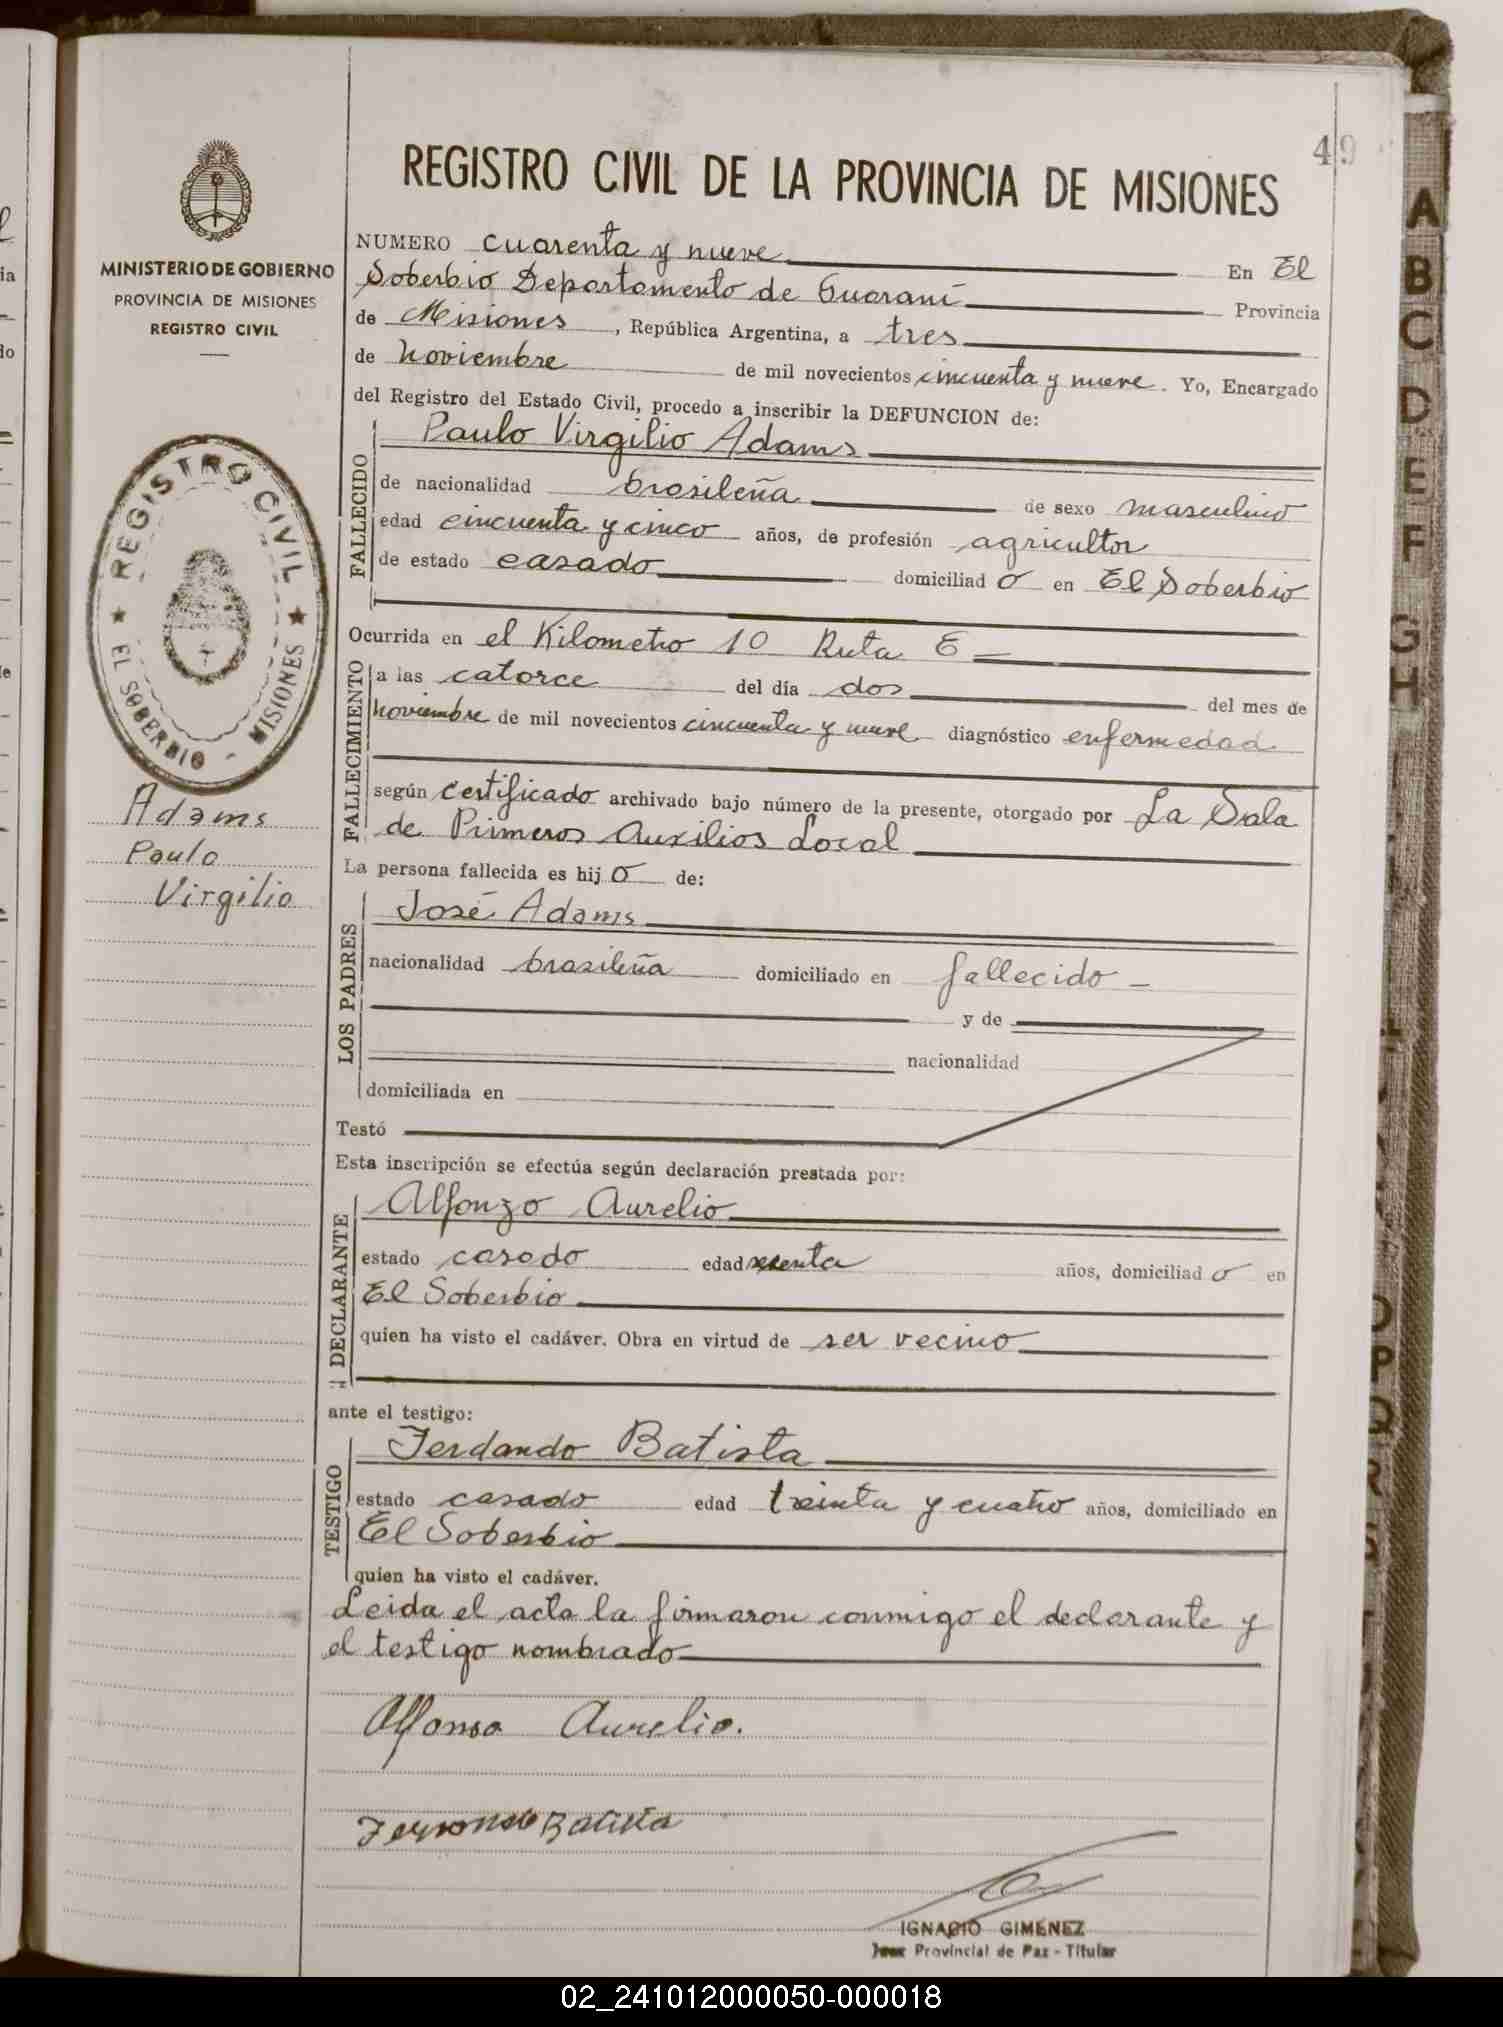 49
REGISTRO CIVIL DE LA PROVINCIA DE MISIONES
MINISTERIO DE GOBIERNO
PROVINCIA DE MISIONES
REGISTRO CIVIL
NUMERO cuarenta y nueve En El
Soberbio Departamento de Guaraní Provincia
de Misiones, República Argentina, a tres
de Noviembre de mil novecientos cincuenta y nueve. Yo, Encargado
del Registro del Estado Civil, procedo a inscribir la DEFUNCION de:
FALLECIDO
Paulo Virgilio Adams
de nacionalidad brasileña de sexo masculino
edad cincuenta y cinco años, de profesión agricultor
de estado casado domiciliad o en El Soberbio
REGISTRO CIVIL
EL SOBERBIO - MISIONES
Adams
Paulo
Virgilio
Ocurrida en el Kilometro 10 Ruta 6
FALLECIMIENTO
a las catorce del día dos del mes de
Noviembre de mil novecientos cincuenta y nueve diagnóstico enfermedad
según certificado archivado bajo número de la presente, otorgado por La Sala
de Primeros Auxilios Local
La persona fallecida es hij o de:
LOS PADRES
José Adams
nacionalidad brasileña domiciliado en fallecido
y de
nacionalidad
domiciliada en
Testó
Esta inscripción se efectúa según declaración prestada por:
DECLARANTE
Alfonzo Aurelio
estado casado edad años, domiciliad o en
El Soberbio
quien ha visto el cadáver. Obra en virtud de ser vecino
ante el testigo:
TESTIGO
Ferdando Batista
estado casado edad treinta y cuatro años, domiciliado en
El Soberbio
quien ha visto el cadáver.
Leida el acta la firmaron conmigo el declarante y
el testigo nombrado
Alfonso Aurelio.
Batista
IGNACIO GIMENEZ
Juez Provincial de Paz - Titular
A
B
C
D
E
F
G
H
O
P
Q
R
S
02_241012000050-000018